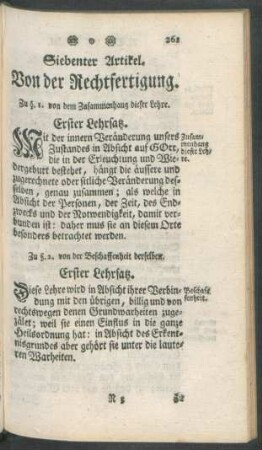 261
Siebenter Artikel.
Von der Rechtfertigung.
Zu §. 1. von dem Zusammenhang dieser Lehre.
Erster Lehrsatz.
Mit der innern Veränderung unsers
Zustandes in Absicht auf GOtt,
die in der Erleuchtung und Wie-
dergeburt bestehet, hängt die äussere und
zugerechnete oder sitliche Veränderung des-
selben, genau zusammen; als welche in
Absicht der Personen, der Zeit, des End-
zwecks und der Notwendigkeit, damit ver-
bunden ist: daher mus sie an diesem Orte
besonders betrachtet werden.
Zusam-
menhang
dieser Leh-
re.
Zu §. 2. von der Beschaffenheit derselben.
Erster Lehrsatz.
Diese Lehre wird in Absicht ihrer Verbin-
dung mit den übrigen, billig und von
rechtswegen denen Grundwarheiten zuge-
zälet; weil sie einen Einflus in die ganze
Heilsordnung hat: in Absicht des Erkent-
nisgrundes aber gehört sie unter die laute-
ren Warheiten.
Beschaf-
fenheit.
R 3